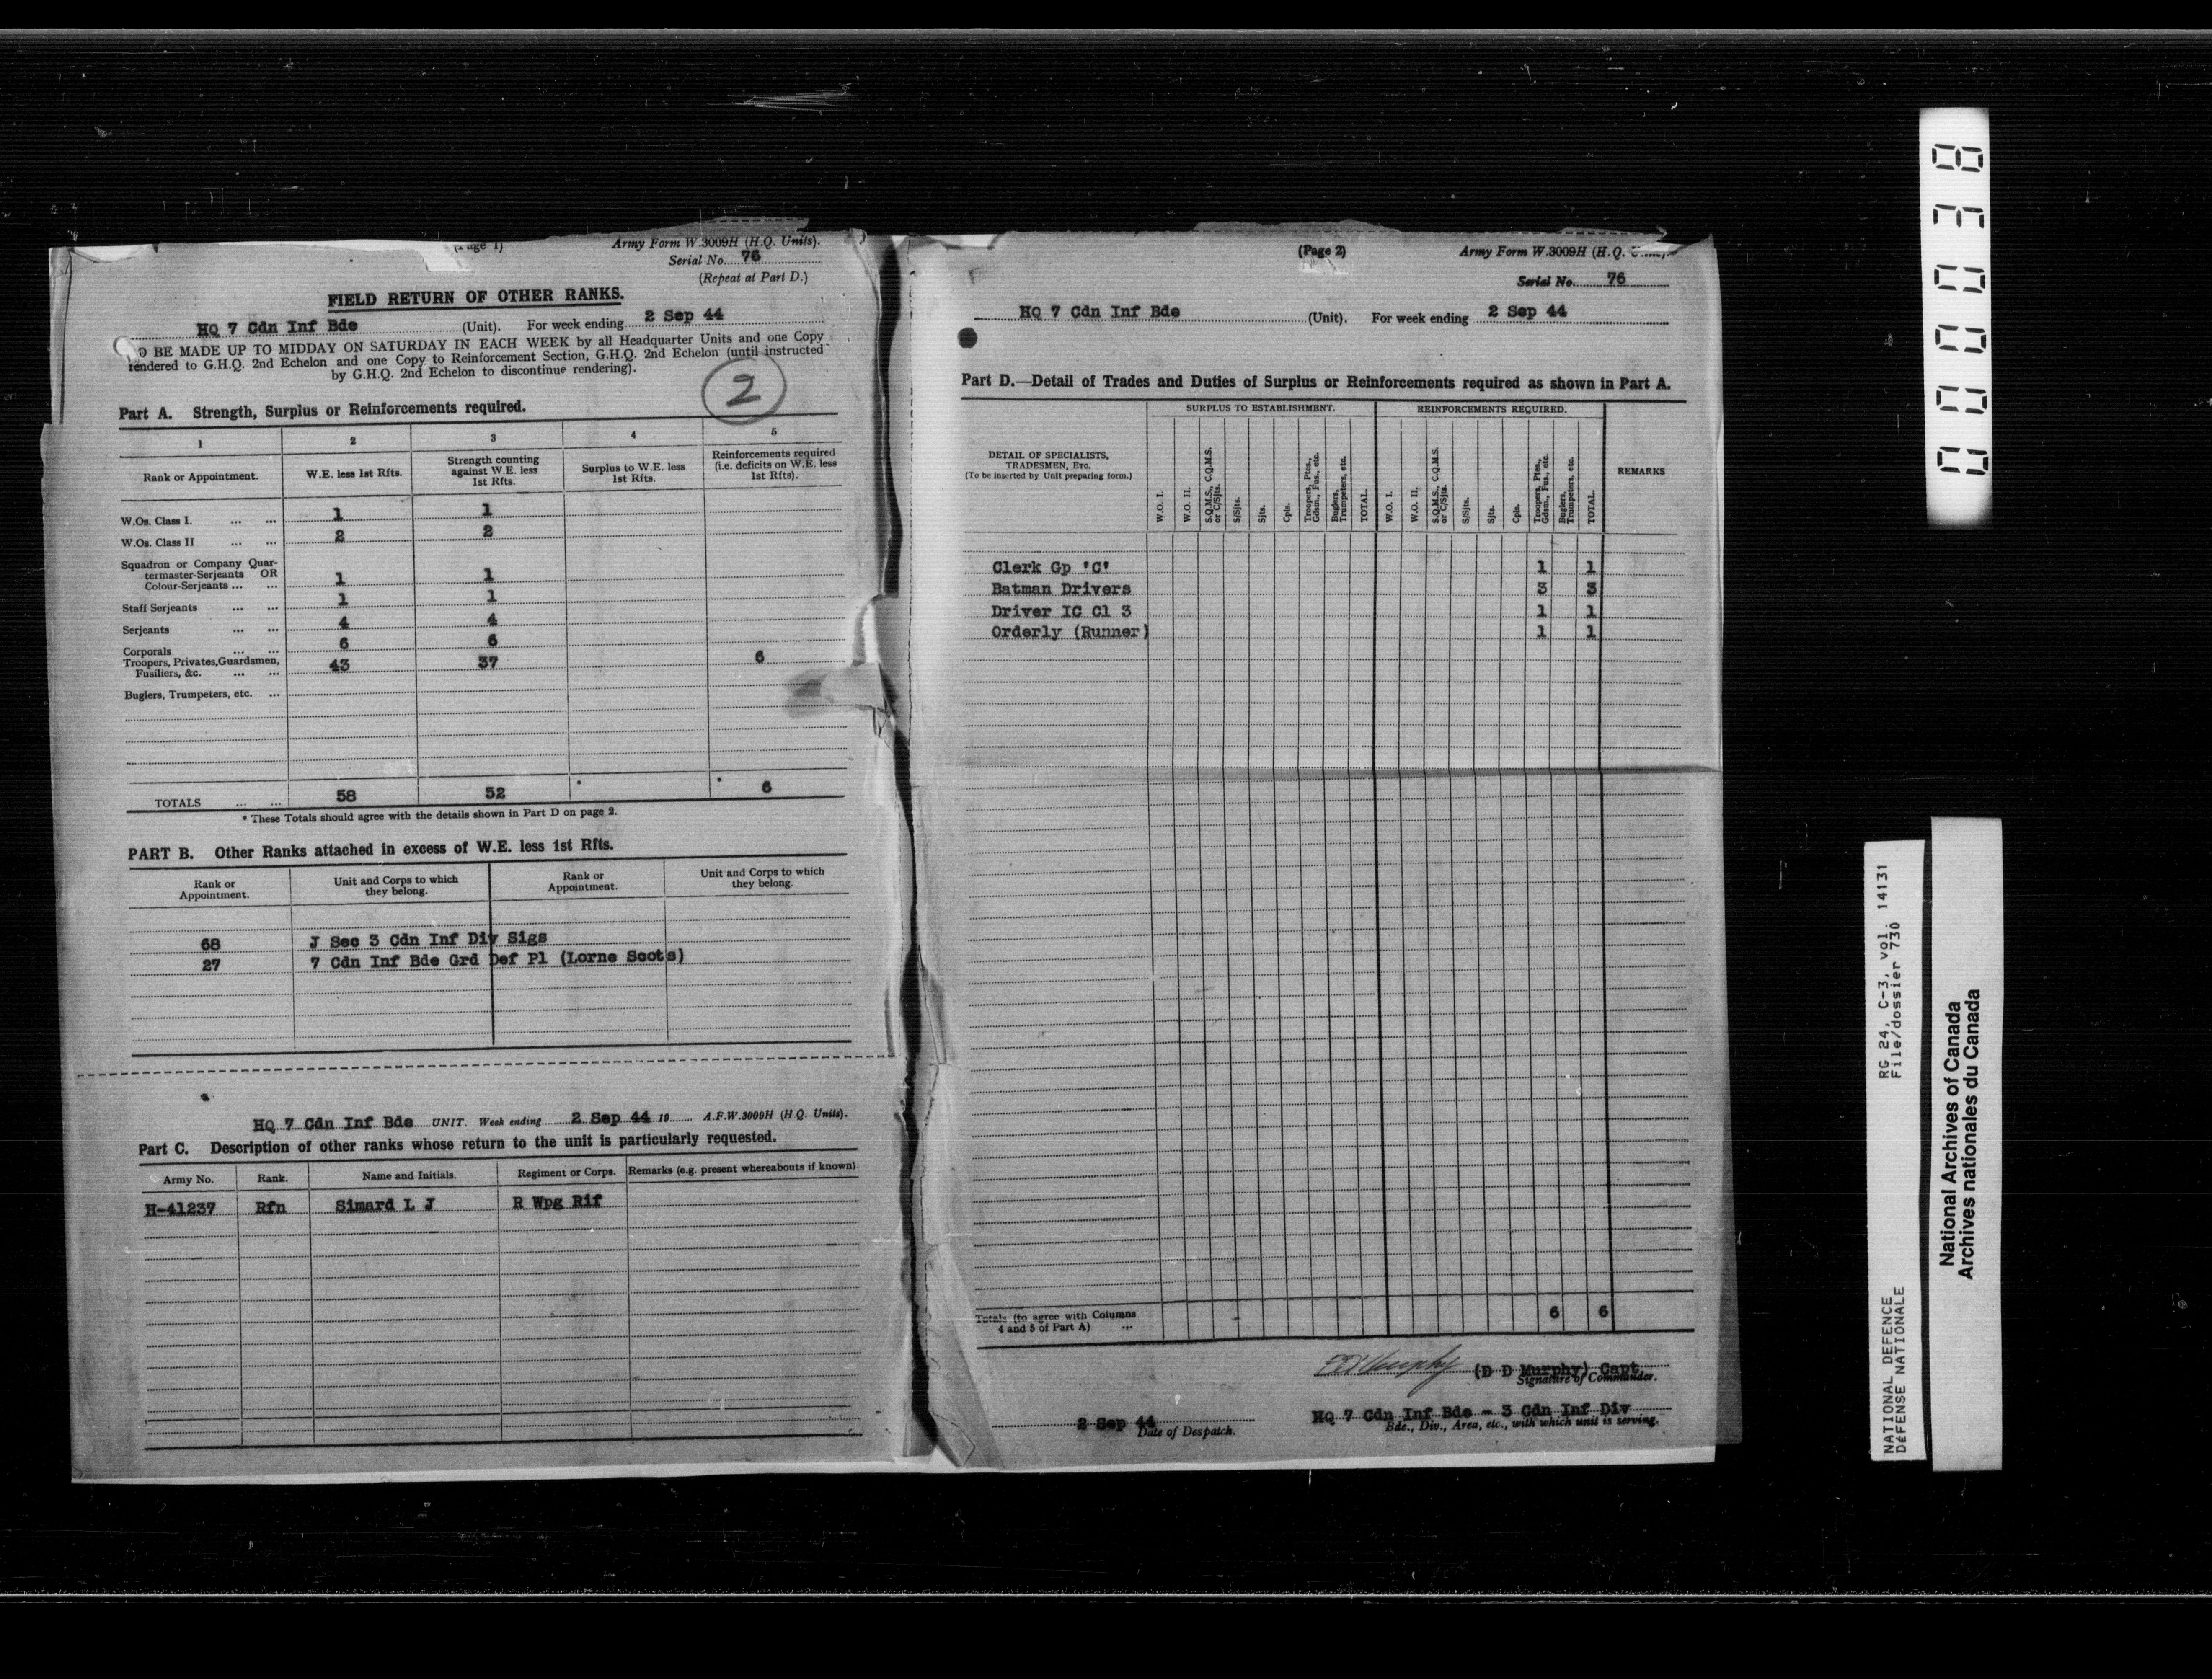 (Page 1)
Army Form W.3009H (H.Q. Units).
Serial No. 76
(Repeat at Part D.)
FIELD RETURN OF OTHER RANKS.
HQ 7 Cdn Inf Bde (Unit). For week ending 2 Sep 44
TO BE MADE UP TO MIDDAY ON SATURDAY IN EACH WEEK by all Headquarter Units and one Copy
rendered to G.H.Q. 2nd Echelon and one Copy to Reinforcement Section, G.H.Q. 2nd Echelon (until instructed
by G.H.Q. 2nd Echelon to discontinue rendering).
2
Part A. Strength, Surplus or Reinforcements required.
1 2 3 4 5
Rank or Appointment. W.E. less 1st Rfts. Strength counting against W.E. less 1st Rfts. Surplus to W.E. less 1st Rfts. Reinforcements required (i.e. deficits on W.E. less 1st Rfts).
W.Os. Class I. ... ... 1 1
W.Os. Class II ... ... 2 2
Squadron or Company Quar-
termaster-Serjeants OR
Colour-Serjeants ... ... 1 1
Staff Serjeants ... ... 1 1
Serjeants ... ... 4 4
Corporals ... ... 6 6
Troopers, Privates, Guardsmen,
Fusiliers, &c. ... ... 43 37 6
Buglers, Trumpeters, etc. ...
TOTALS ... ... 58 52 * * 6
* These Totals should agree with the details shown in Part D on page 2.
PART B. Other Ranks attached in excess of W.E. less 1st Rfts.
Rank or Appointment. Unit and Corps to which they belong. Rank or Appointment. Unit and Corps to which they belong.
68 J Sec 3 Cdn Inf Div Sigs
27 7 Cdn Inf Bde Grd Def Pl (Lorne Scots)
HQ 7 Cdn Inf Bde UNIT. Week ending 2 Sep 44 19 A.F.W.3009H (H.Q. Units).
Part C. Description of other ranks whose return to the unit is particularly requested.
Army No. Rank. Name and Initials. Regiment or Corps. Remarks (e.g. present whereabouts if known)
H-41237 Rfn Simard L J R Wpg Rif
(Page 2)
Army Form W.3009H (H.Q.
Serial No. 76
HQ 7 Cdn Inf Bde (Unit). For week ending 2 Sep 44
Part D.—Detail of Trades and Duties of Surplus or Reinforcements required as shown in Part A.
SURPLUS TO ESTABLISHMENT. REINFORCEMENTS REQUIRED.
DETAIL OF SPECIALISTS,
TRADESMEN, Etc.
(To be inserted by Unit preparing form.)
W.O. I. W.O. II. S.Q.M.S., C.Q.M.S. or C/Sjts. S/Sjts. Sjts. Cpls. Troopers, Ptes., Gdsm., Fus., etc. Buglers, Trumpeters, etc. TOTAL.
W.O. I. W.O. II. S.Q.M.S., C.Q.M.S. or C/Sjts. S/Sjts. Sjts. Cpls. Troopers, Ptes., Gdsm., Fus., etc. Buglers, Trumpeters, etc. TOTAL.
REMARKS
Clerk Gp 'C' 1 1
Batman Drivers 3 3
Driver IC Cl 3 1 1
Orderly (Runner) 1 1
Totals (to agree with Columns
4 and 5 of Part A) ... 6 6
(D D Murphy) Capt.
Signature of Commander.
2 Sep 44
Date of Despatch.
HQ 7 Cdn Inf Bde - 3 Cdn Inf Div
Bde., Div., Area, etc., with which unit is serving.
000038
RG 24, C-3, vol. 14131
File/dossier 730
NATIONAL DEFENCE
DÉFENSE NATIONALE
National Archives of Canada
Archives nationales du Canada